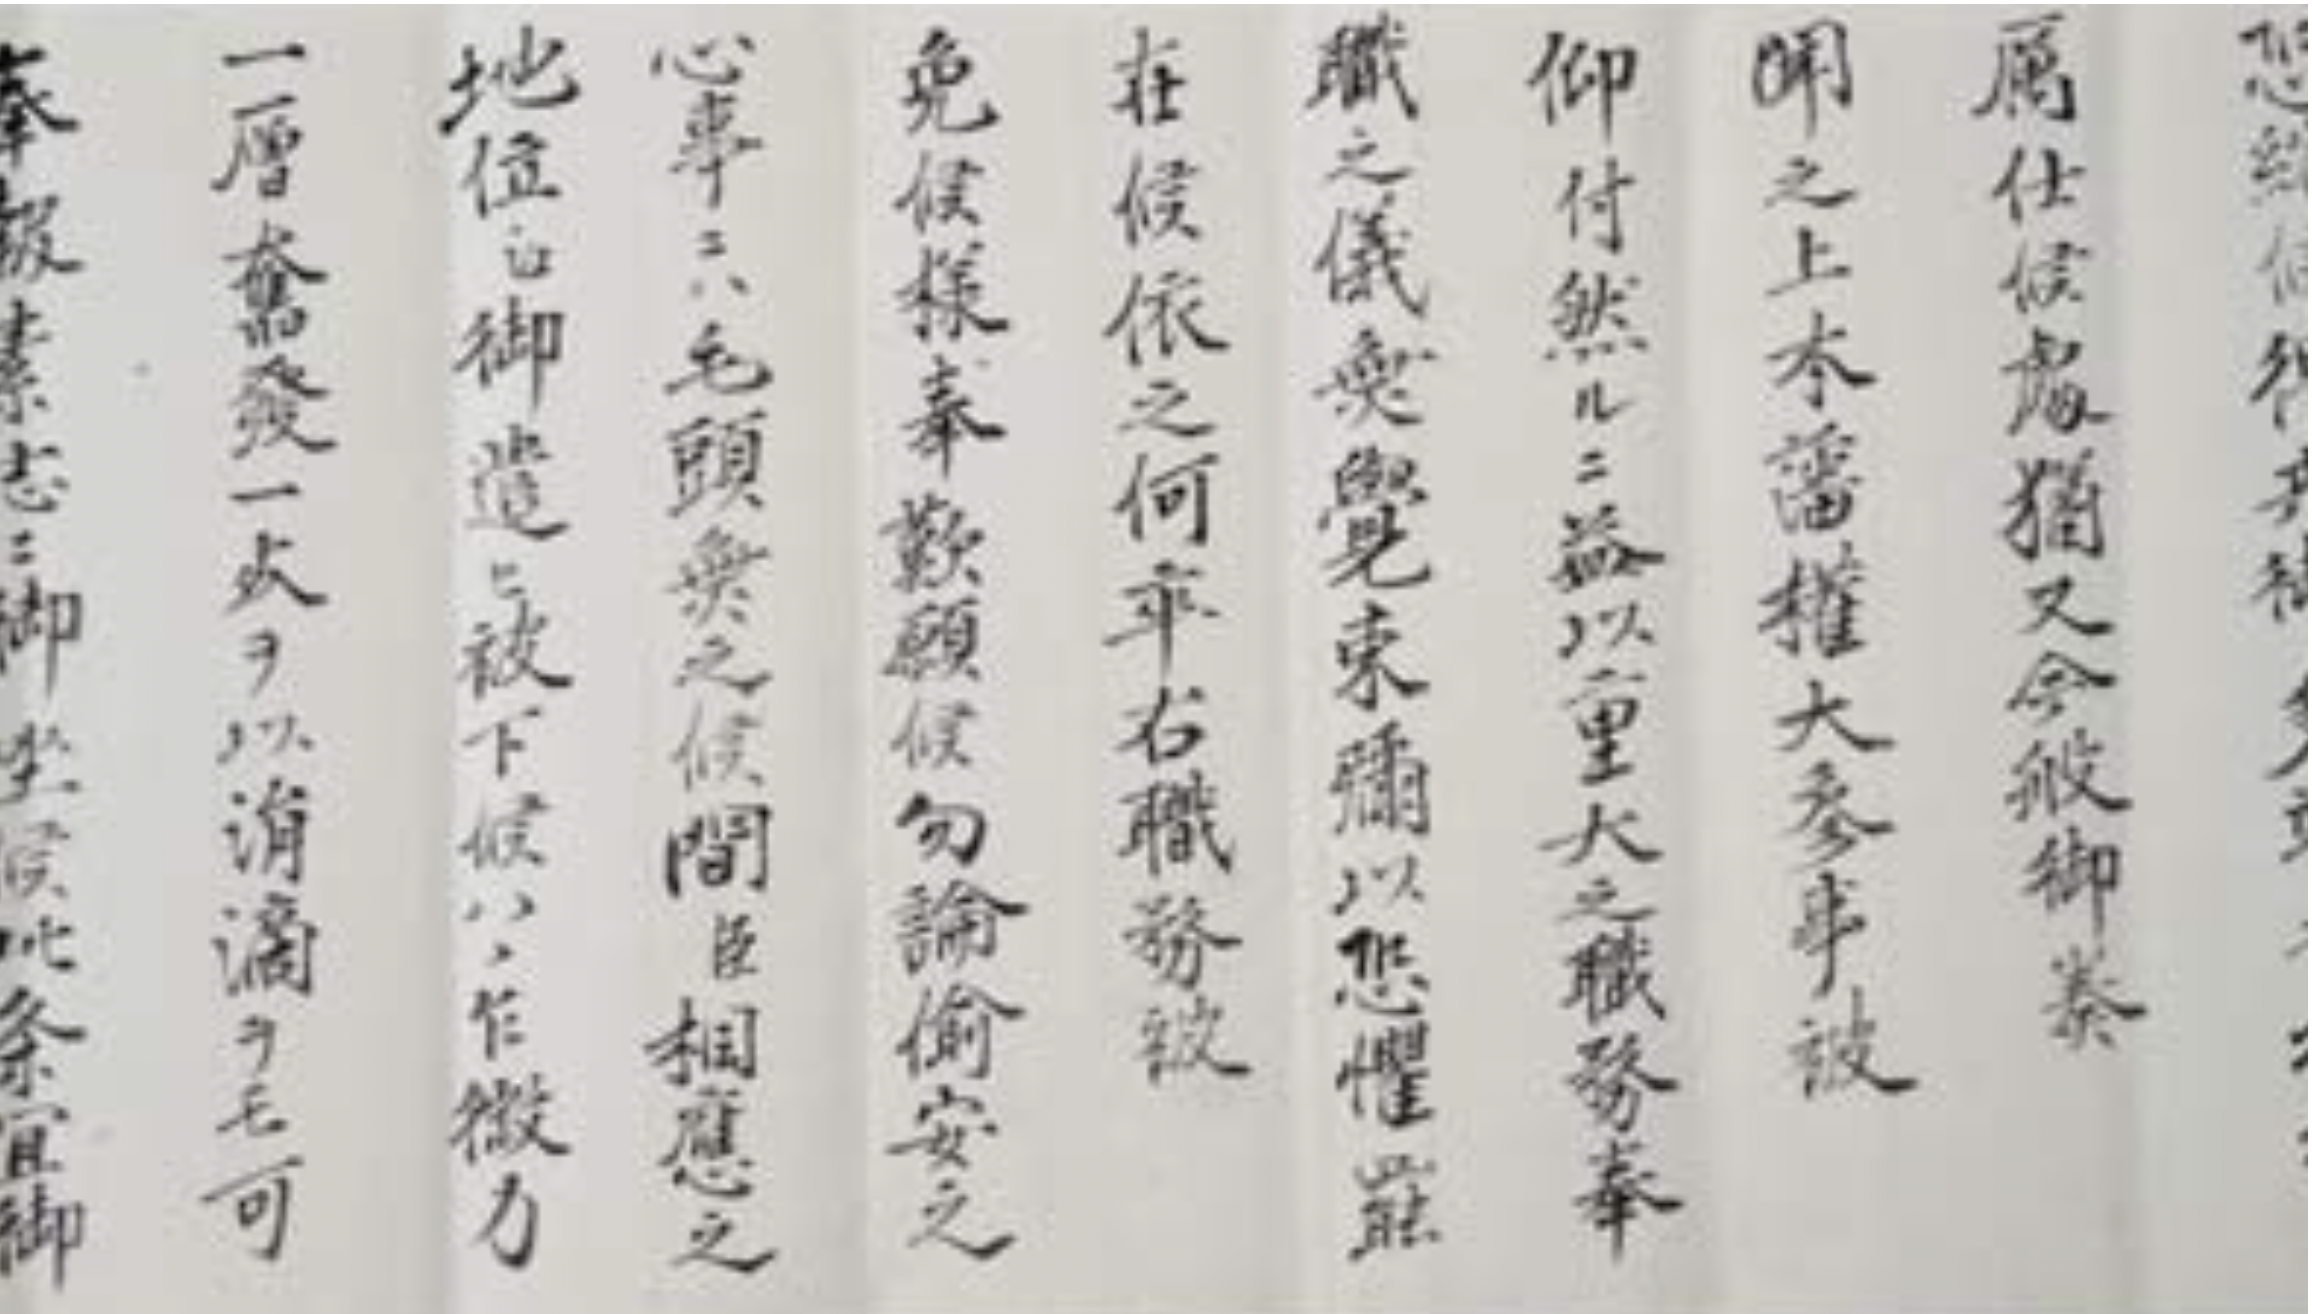 属仕候處猶又今般御奏
聞之上本藩権大参事被
仰付然ルニ益以重大之職務奉
職之儀無覺束彌以恐懼
在候依之何卒右職務被
免候様奉歎願候勿論偷安之
心事ニハ毛頭無之候間臣相應之
地位ニ御遣ヒ被下候ハヽ乍微力
一層奮發一火ヲ以涓滴ヲモ可
奉報素志ニ御坐候此条宜御